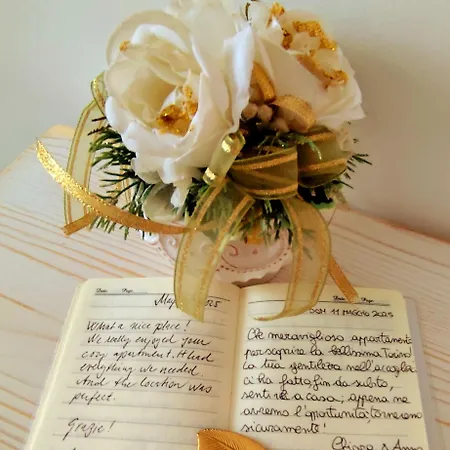 Date. Page.
May 2025
What a nice place!
We really enjoyed your
cozy apartment. It had
everything we needed.
And the location was
perfect.
Grazie!
Date. Page.
DOM 11 MAGGIO 2025
Che meraviglioso appartamento
per scoprire la bellissima Torino
La tua gentilezza nell'accoglienza
ci ha fatto fin da subito,
sentire a casa; appena ne
avremo l'opportunità, torneremo
sicuramente!
Chiara & Anna